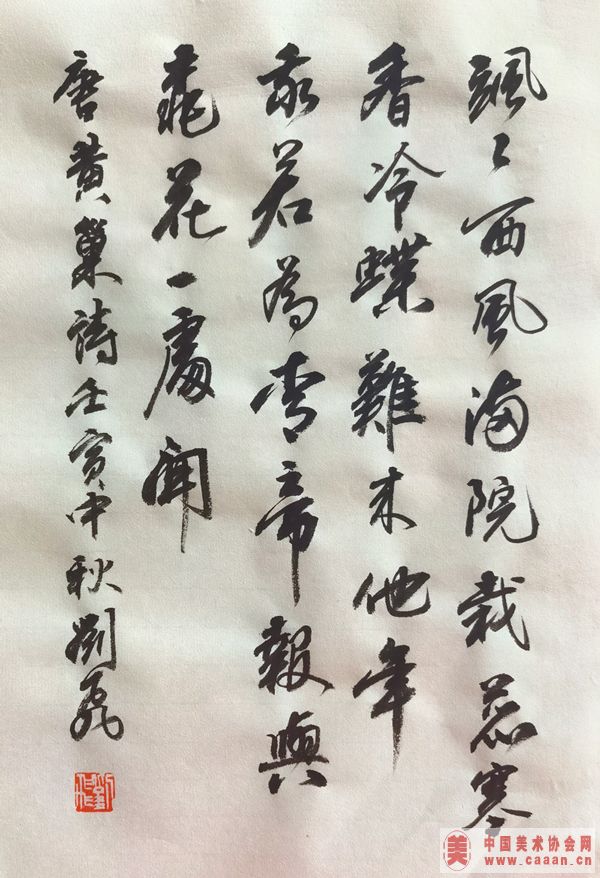 颯〻西風滿院栽蕊寒
香冷蝶難来他年
我若為青帝報與
桃花一處開
唐黄巢詩壬寅中秋劉
美 中国美术协会网
www.caaan.cn